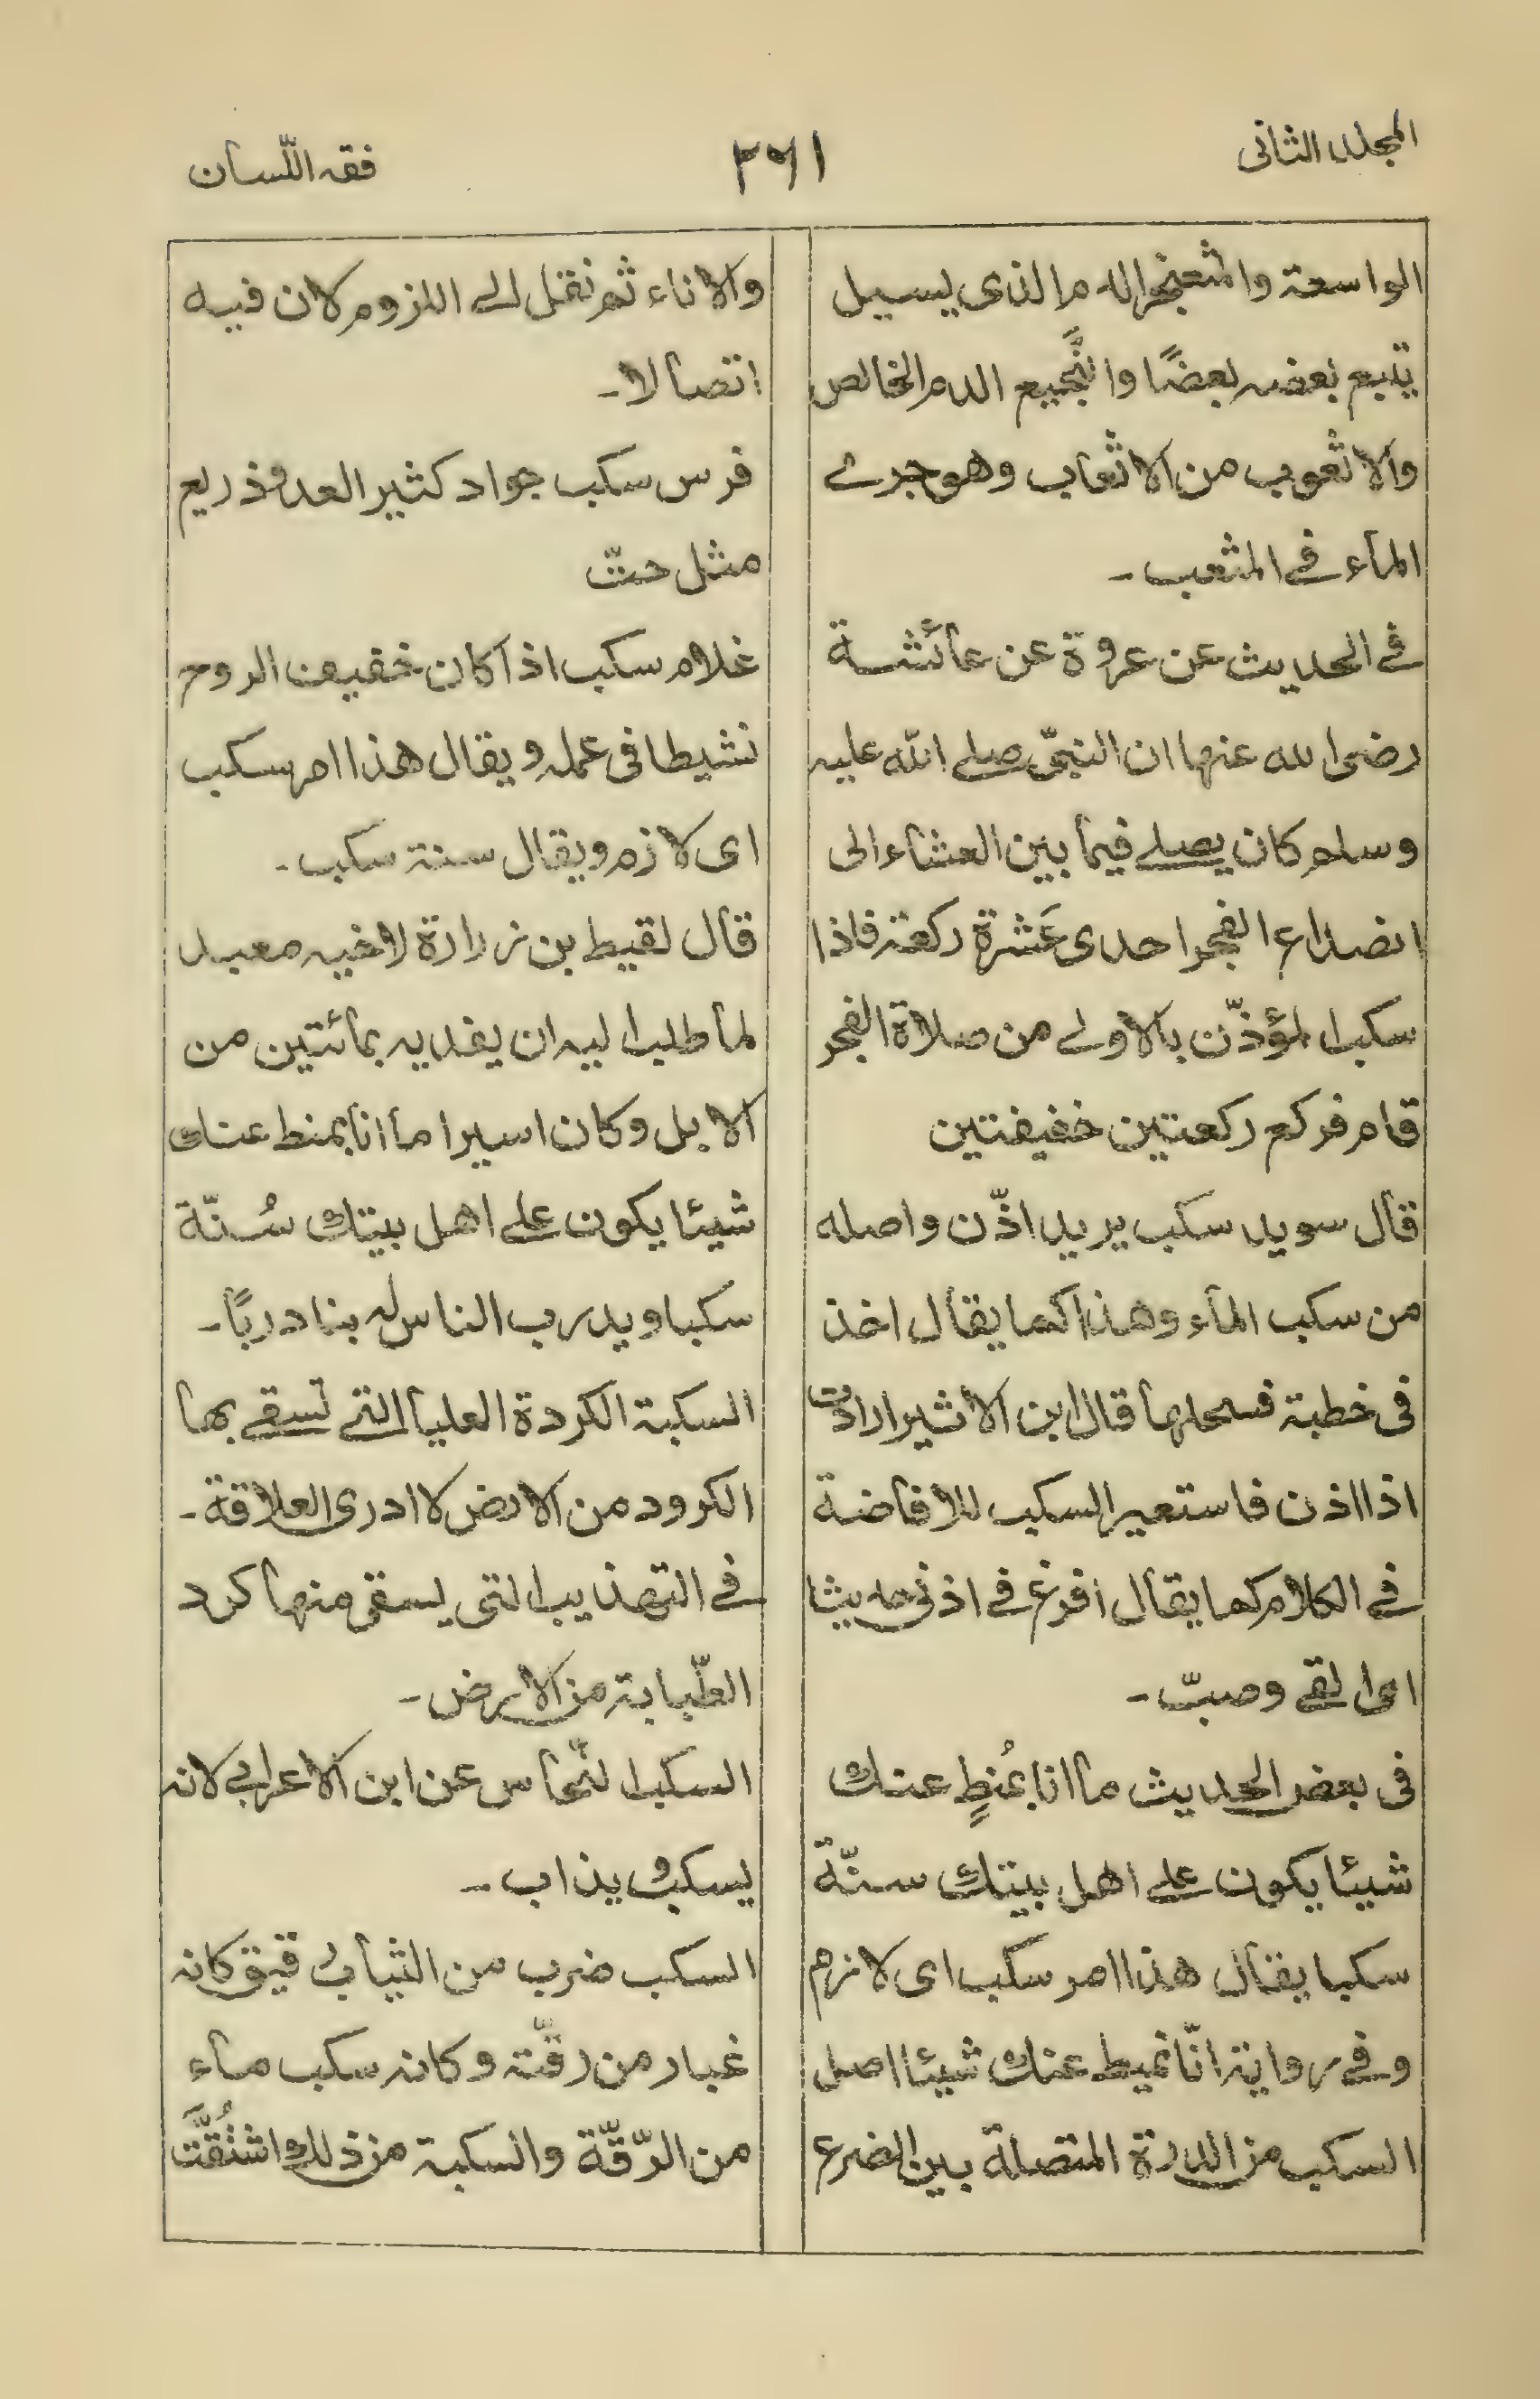 المجلد الثانی
٣٦١
فقه اللّسان
الواسعة والمثعنجر الدم الذی یسیل
یتبع بعضه بعضًا والنَّجیع الدم الخالص
والاثعوب من الاثعاب وهو جرے
المآء فے المثعب ۔
فے الحدیث عن عروة عن عائشة
رضی الله عنها ان النبیّ صلے الله علیه
وسلم کان یصلے فیما بین العشاء الی
انصداع الفجر احدی عَشرة رکعة فاذا
سکب المؤذّن بالاولے من صلاة الفجر
قام فرکع رکعتین خفیفتین
قال سوید سکب یرید اذّن واصله
من سکب المآء وهذا کما یقال اخذ
فی خطبة فسحلها قال ابن الاثیر ارادت
اذا اذن فاستعیر السکب للافاضة
فے الکلام کما یقال افرغ فے اذنی حدیثا
ای القے وصبّ ۔
فی بعض الحدیث ما انا بمُنطٍ عنك
شیئا یکون علے اهل بیتك سنّة
سکبا یقال هذا امر سکب ای لازم
وفے روایة انّا نمیط عنك شیئا اصل
السکب من الدرة المتصلة بین الضرع
والاناء ثم نقل الے اللزوم لان فیه
اتصالا ۔
فرس سکب جواد کثیر العدو ذریع
مثل حتّ
غلام سکب اذا کان خفیف الروح
نشیطا فی عمله ویقال هذا امر سکب
ای لازم ویقال سنة سکب ۔
قال لقیط بن زرارة لاخیه معبد
لما طلب الیه ان یفدیه بمائتین من
الابل وکان اسیرا ما انا بمنط عنك
شیئا یکون علے اهل بیتك سُنّة
سکبا ویدرب الناس له بنا دربًا ۔
السکبة الکردة العلیا التے تسقے بها
الکرود من الارض لا ادری العلاقة ۔
فے التهذیب التی یسقی منها کرد
الطّبابة من الارض ۔
السکب النّحاس عن ابن الاعرابے لانه
یسکب ویذاب ۔
السکب ضرب من الثیاب رقیق کانه
غبار من رقّته وکانه سکب مآء
من الرّقّة والسکبة من ذلك اشتُقَّت